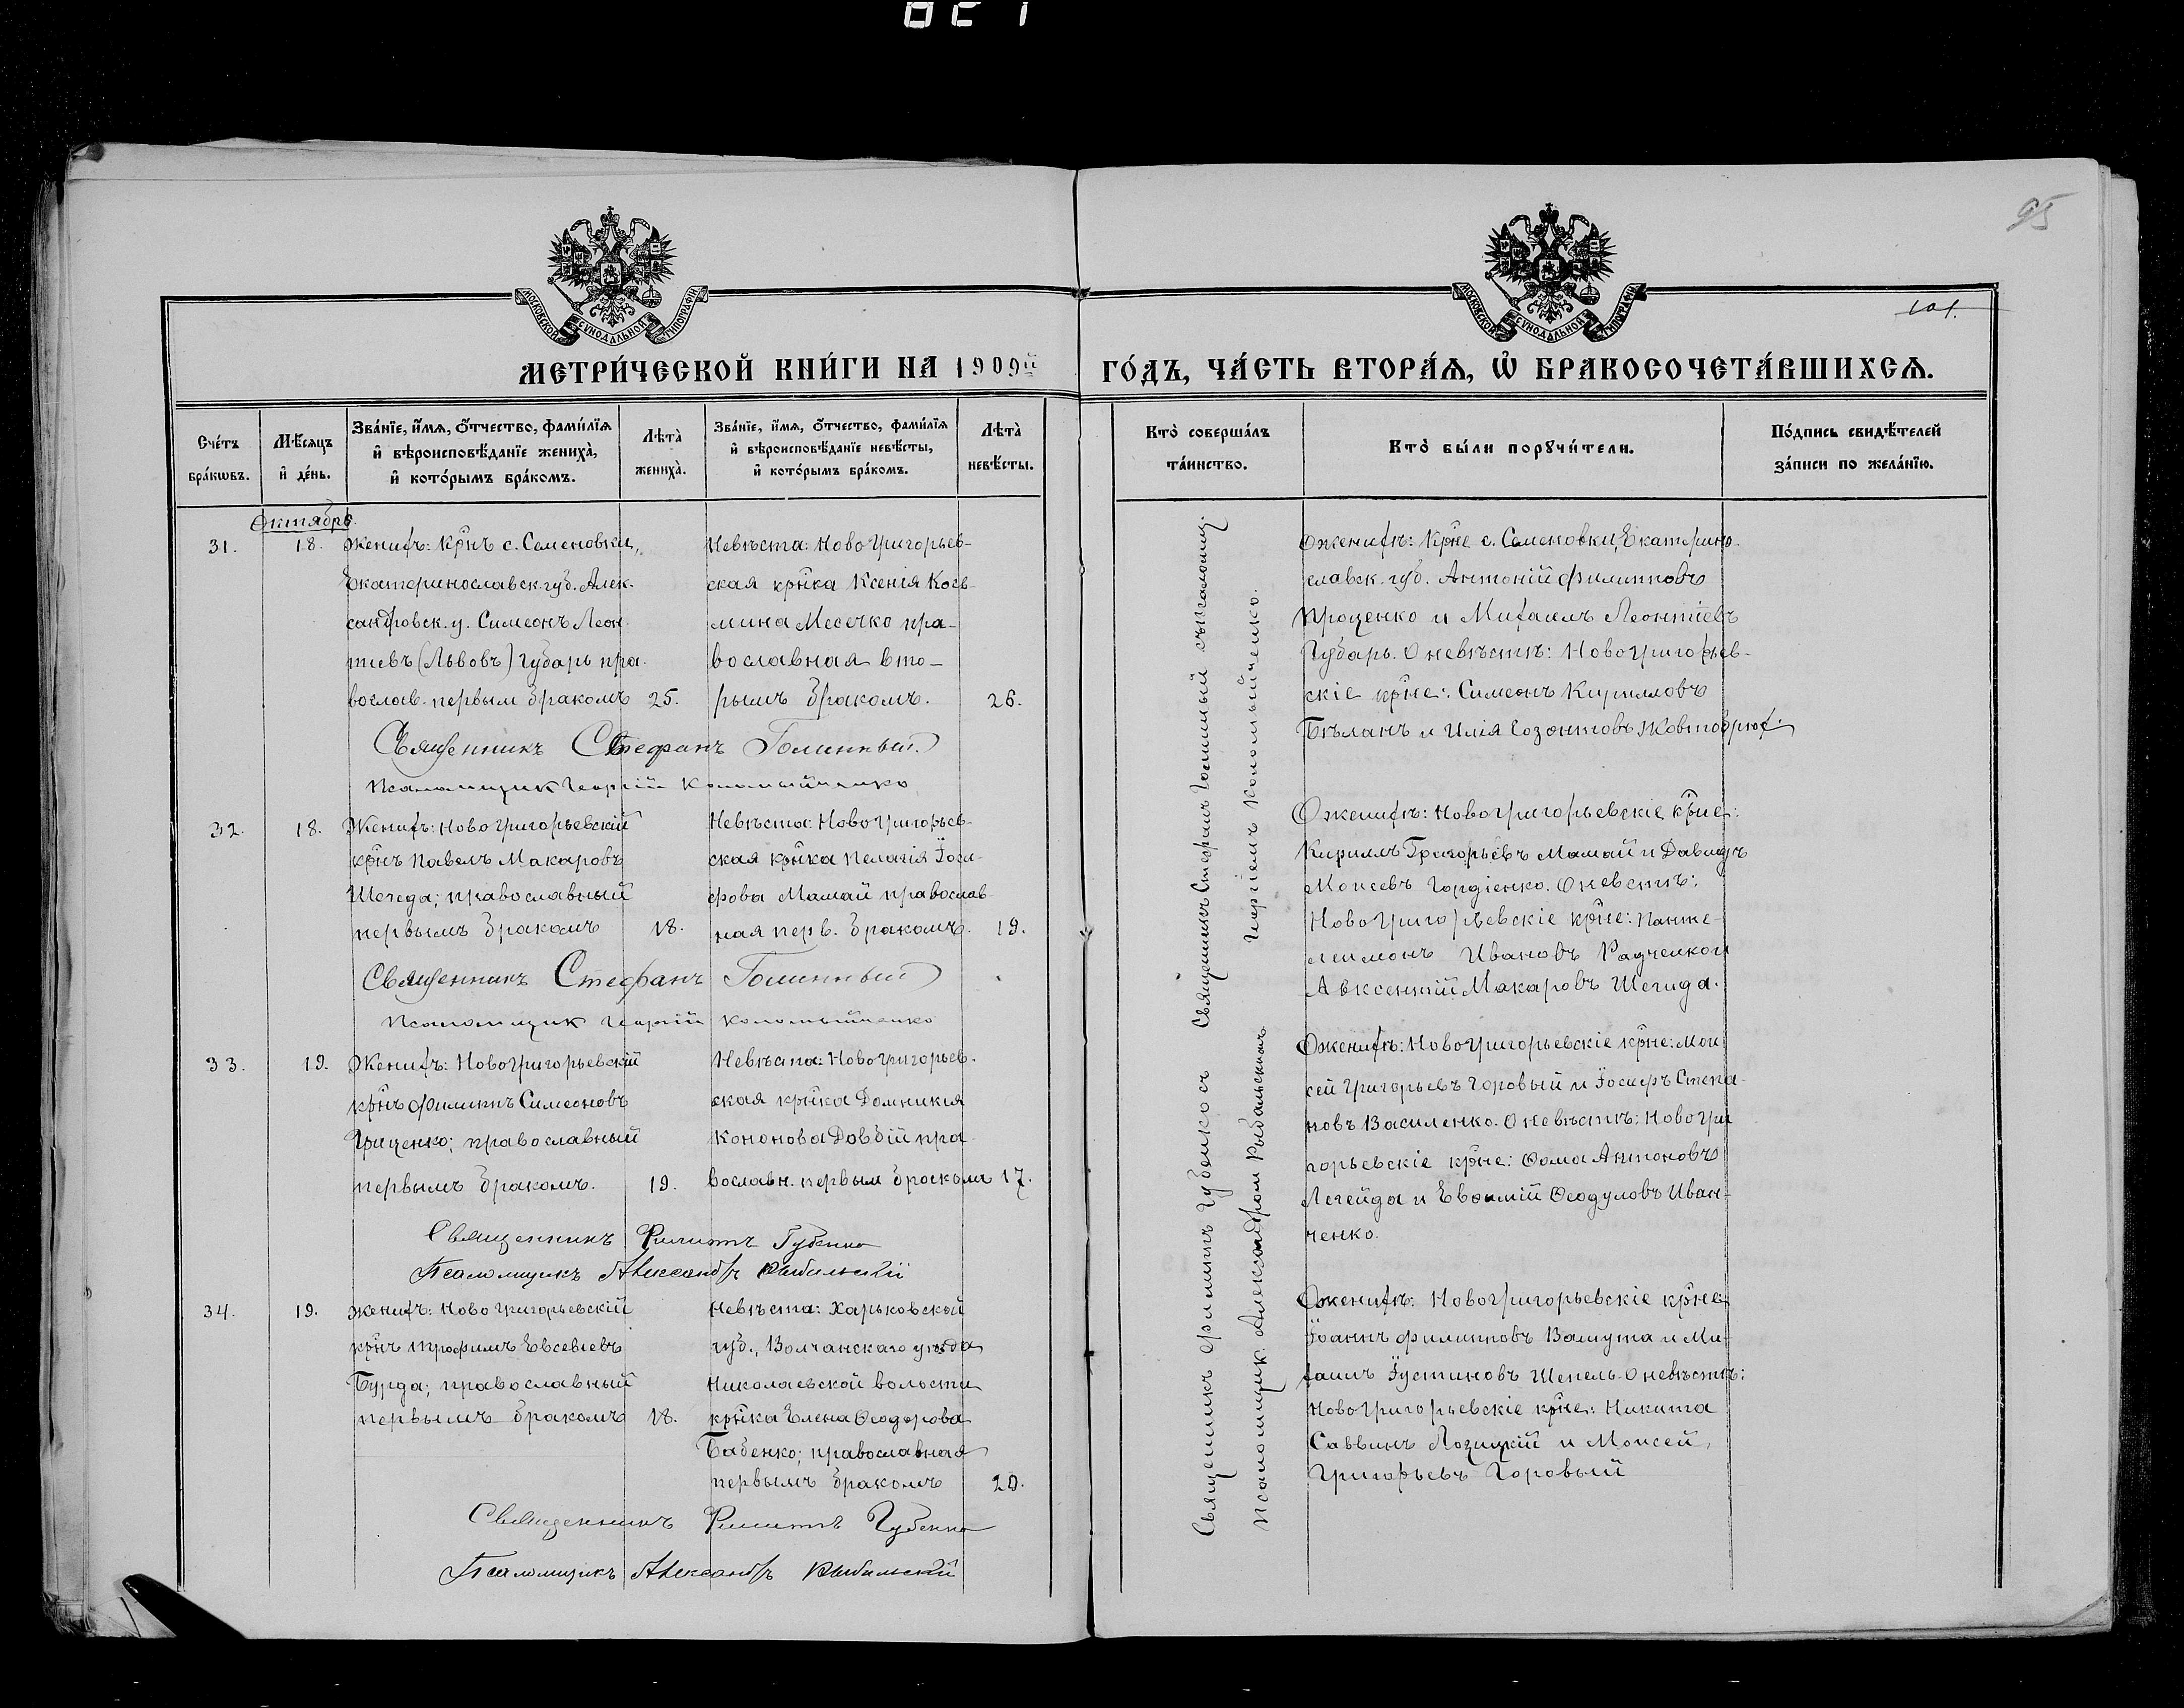 95
101.
МОСКОВСКОЙ СУНОДАЛЬНОЙ ТИПОГРАФІИ
МОСКОВСКОЙ СУНОДАЛЬНОЙ ТИПОГРАФІИ
МЕТРИ́ЧЕСКОЙ КНИ́ГИ НА 1909й
ГО́ДЪ, ЧА́СТЬ ВТОРА́Я, Ѡ БРАКОСОЧЕТА́ВШИХСЯ.
Сче́тъ бра́кѡвъ.
Мѣ́сяцъ и҆ де́нь.
Зва́нїе, и҆́мя, ѻ҆́тчество, фами́лїя
и҆ вѣроисповѣ́данїе жениха̀,
и҆ кото́рымъ бра́комъ.
Лѣта̀ жениха̀.
Зва́нїе, и҆́мя, ѻ҆́тчество, фами́лїя
и҆ вѣроисповѣ́данїе невѣ́сты,
и҆ кото́рымъ бра́комъ.
Лѣта̀ невѣ́сты.
Кто̀ соверша́лъ та́инство.
Кто̀ бы́ли порꙋчи́тели.
По́дпись свидѣ́телей за́писи по жела́нїю.
Октябрь.
31.
18.
Женихъ: крнъ с. Семеновки,
Екатеринославск. губ. Алек-
сандровск. у. Симеонъ Леон-
тіевъ (Львовъ) Губарь пра-
вослав. первым бракомъ
25.
Невѣста: Новогригорьев-
ская крнка Ксенія Косъ-
мина Месечко пра-
вославная вто-
рымъ бракомъ.
26.
Священникъ СтефанъГолинный
Псаломщик Георгій Коломыйченко
32.
18.
Женихъ: Новогригорьевскій
крнъ Павелъ Макаровъ
Шегеда; православный
первымъ бракомъ
18.
Невѣста: Новогригорьев-
ская крнка Пелагія Іоси-
фова Мамай православ-
ная перв. бракомъ.
19.
Священникъ Стефанъ Голинный
Псаломщик Георгій Коломыйченко
33.
19.
Женихъ: Новогригорьевскій
крнъ Филиппъ Симеоновъ
Гриценко; православный
первымъ бракомъ.
19.
Невѣста: Новогригорьев-
ская крнка Домникія
Кононова Довбій пра-
вославн. первым броскомъ
17.
Священникъ Филиппъ Губенко
Псаломщикъ Александръ Рыбальскій
34.
19.
Женихъ: Новогригорьевскій
крнъ Трофимъ Евсевіевъ
Бурда; православный
первымъ бракомъ
18.
Невѣста: Харьковской
губ., Волчанскаго уѣзда
Николаевской волости
крнка Елена Ѳеодорова
Бабенко; православная
первымъ бракомъ
20.
Священникъ Филиппъ Губенко
Псаломщикъ Александръ Рыбальскій
Священникъ Стефанъ Голинный съ псаломщ.
Георгіемъ Коломыйченко.
Священникъ Филиппъ Губенко съ
псаломщик. Александром Рыбальскимъ
О женихѣ: Крне с. Семеновки, Екатерино-
славск. губ. Антоній Филипповъ
Проценко и Михаилъ Леонтіевъ
Губарь. О невѣстѣ: Новогригорьев-
скіе крне: Симеонъ Кирилловъ
Бѣланъ и Илія Созонтовъ Жовтобрюх.
О женихѣ: Новогригорьевскіе крне:
Кириллъ Григорьевъ Мамай и Давидъ
Моисеевъ Гордіенко. О невѣстѣ:
Новогригорьевскіе крне: Панте-
леимонъ Ивановъ Радченко и
Авксентій Макаровъ Шегида.
О женихѣ: Новогригорьевскіе крне: Мои-
сей Григорьевъ Горовый и Іосифъ Степа-
новъ Василенко. О невѣстѣ: Новогри-
горьевскіе крне: Ѳома Антоновъ
Легейда и Евѳимій Ѳеодуловъ Иван-
ченко.
О женихѣ: Новогригорьевскіе крне:
Іоаннъ Филипповъ Вамута и Ми-
хаилъ Іустиновъ Шепель. О невѣстѣ:
Новогригорьевскіе крне: Никита
Саввинъ Лозицкій и Моисей
Григорьевъ Горовый